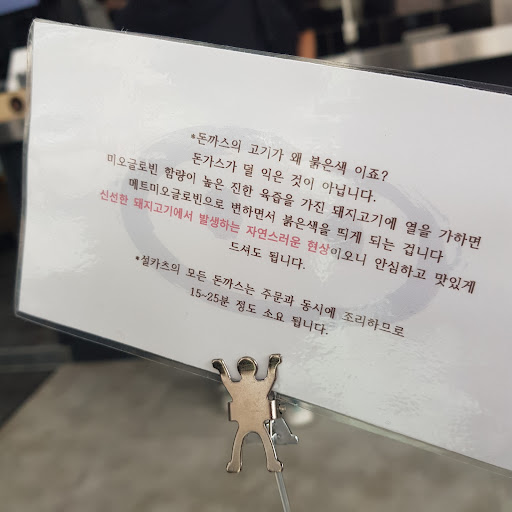 *돈까스의 고기가 왜 붉은색 이죠?
돈가스가 덜 익은 것이 아닙니다.
미오글로빈 함량이 높은 진한 육즙을 가진 돼지고기에 열을 가하면
메트미오글로빈으로 변하면서 붉은색을 띄게 되는 겁니다
신선한 돼지고기에서 발생하는 자연스러운 현상이오니 안심하고 맛있게
드셔도 됩니다.
*설카츠의 모든 돈까스는 주문과 동시에 조리하므로
15~25분 정도 소요 됩니다.